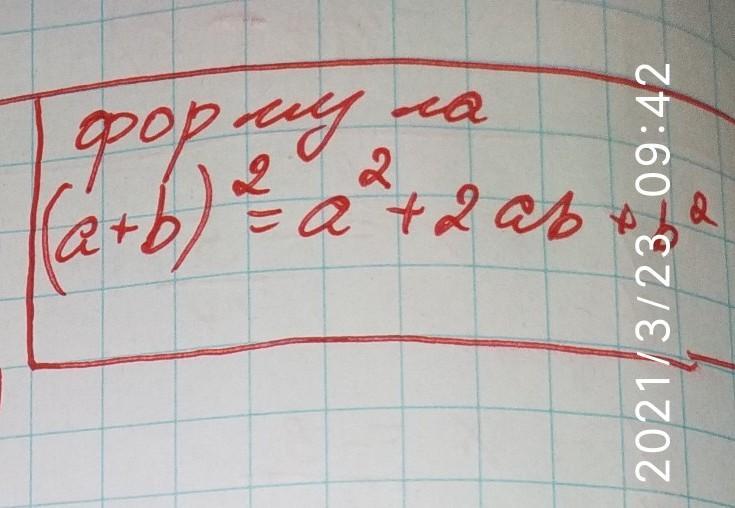 формула
(a+b)² = a² + 2ab + b²
2021/3/23 09:42